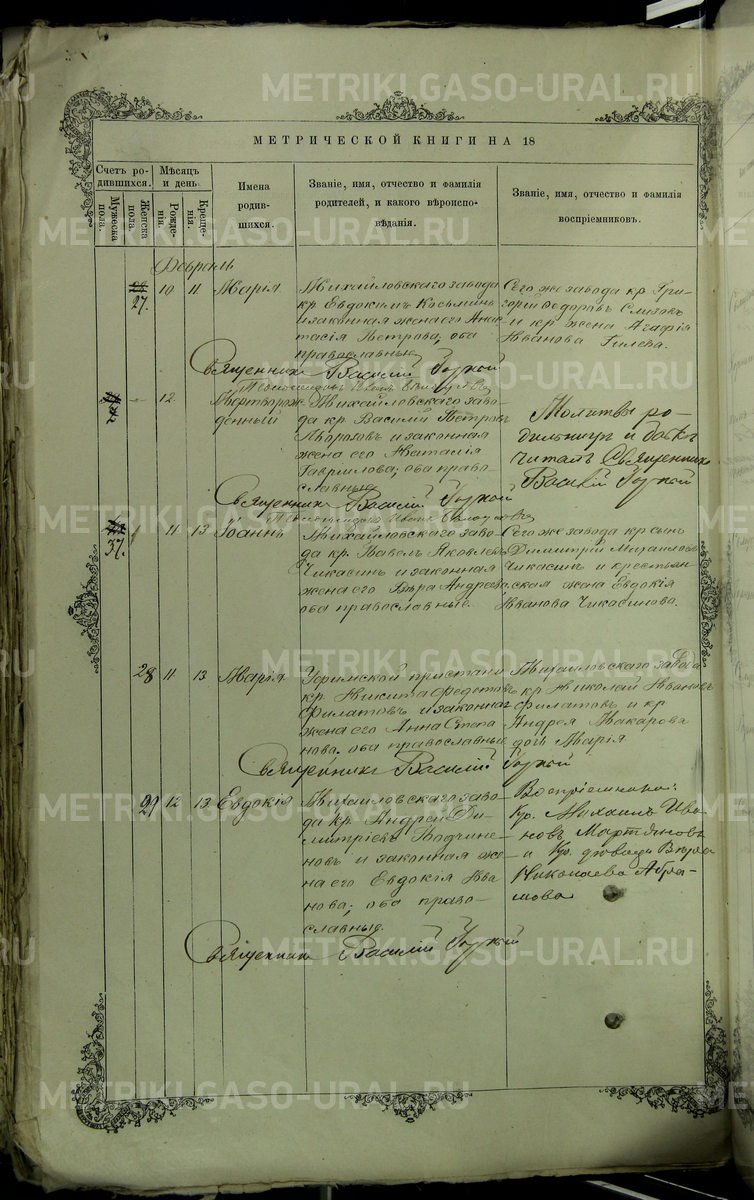 METRIKI.GASO-URAL.RU
МЕТРИЧЕСКОЙ КНИГИ НА 18
Счетъ родившихся.
Мужеска пола.
Женска пола.
Мѣсяцъ и день
Рожденія.
Крещенія.
Имена родившихся.
Званіе, имя, отчество и фамилія родителей, и какого вѣроисповѣданія.
Званіе, имя, отчество и фамилія воспріемниковъ.
Февраль
27. 10 11 Марія
Михайловскаго завода
кр. Евдокимъ Косьминъ
и законная жена его Анас-
тасія Петрова; оба
православные
Сего же завода кр. Гри-
горій Ѳедоровъ
и кр. жена Агафія
Иванова
Священникъ Василій
12 Мертворож-
денный
Михайловскаго заво-
да кр. Василій Петровъ
и законная
жена его Наталія
Гаврилова; оба право-
славные
Молитвы ро-
дильницѣ и
читалъ Священникъ
Василій
Священникъ Василій
37. 11 13 Іоаннъ
Михайловскаго заво-
да кр. Павелъ Яковлевъ
Чикасинъ и законная
жена его Вѣра Андреева
оба православные.
Сего же завода кр сынъ
Димитрій Михайловъ
Чикасинъ и крестьян-
ская жена Евдокія
Иванова Чикасинова.
28 11 13 Марія
Уфимской пристани
кр. Никита Федотовъ
Филатовъ и законная
жена его Анна Степа-
нова. оба православные
Михайловскаго завода
кр Николай Ивановъ
Филатовъ и кр
Андрея Макарова
дочь Марія
Священникъ Василій
29 12 13 Евдокія
Михайловскаго заво-
да кр. Андрей Ди-
митріевъ Подчине-
новъ и законная же-
на его Евдокія Ива-
нова; оба право-
славные.
Воспріемники:
Кр. Михаилъ Ива-
новъ Мартьяновъ
и Кр. дѣвица Вѣра
Николаева Абра-
мова
Священникъ Василій